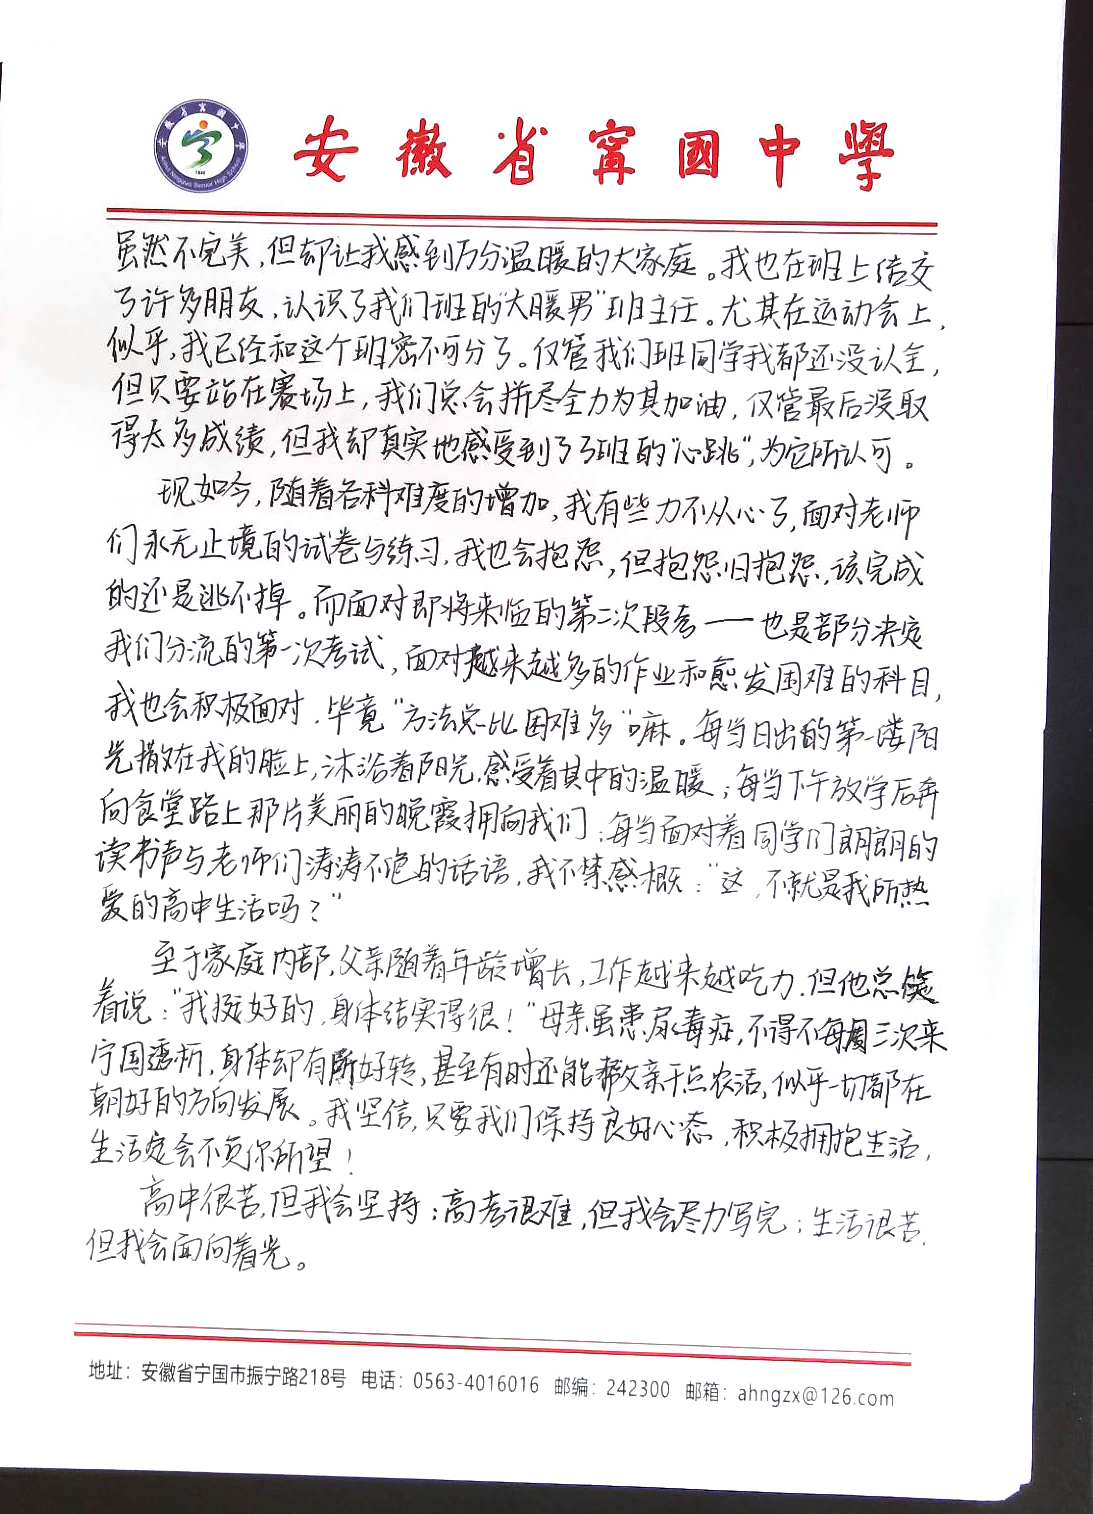 安徽省甯國中學
虽然不完美，但却让我感到万分温暖的大家庭。我也在班上结交
了许多朋友，认识了我们班的“大暖男”班主任。尤其在运动会上，
似乎，我已经和这个班密不可分了。仅管我们班同学我都还没认全，
但只要站在赛场上，我们总会拼尽全力为其加油，仅管最后没取
得太多成绩，但我却真实地感受到了3班的“心跳”，为它所认可。
现如今，随着各科难度的增加，我有些力不从心了，面对老师
们永无止境的试卷与练习，我也会抱怨，但抱怨归抱怨，该完成
的还是逃不掉。而面对即将来临的第二次段考——也是部分决定
我们分流的第一次考试，面对越来越多的作业和愈发困难的科目，
我也会积极面对，毕竟“方法总比困难多”嘛。每当日出的第一缕阳
光撒在我的脸上，沐浴着阳光，感受着其中的温暖；每当下午放学后奔
向食堂路上那片美丽的晚霞拥向我们；每当面对着同学们朗朗的
读书声与老师们涛涛不绝的话语，我不禁感概：“这，不就是我所热
爱的高中生活吗？”
至于家庭内部，父亲随着年龄增长，工作越来越吃力，但他总笑
着说：“我挺好的，身体结实得很！”母亲虽患尿毒症，不得不每周三次来
宁国透析，身体却有所好转，甚至有时还能帮父亲干点农活，似乎一切都在
朝好的方向发展。我坚信，只要我们保持良好心态，积极拥抱生活，
生活定会不负你所望！
高中很苦，但我会坚持；高考很难，但我会尽力写完；生活很苦，
但我会面向着光。
地址：安徽省宁国市振宁路218号 电话：0563-4016016 邮编：242300 邮箱：ahngzx@126.com